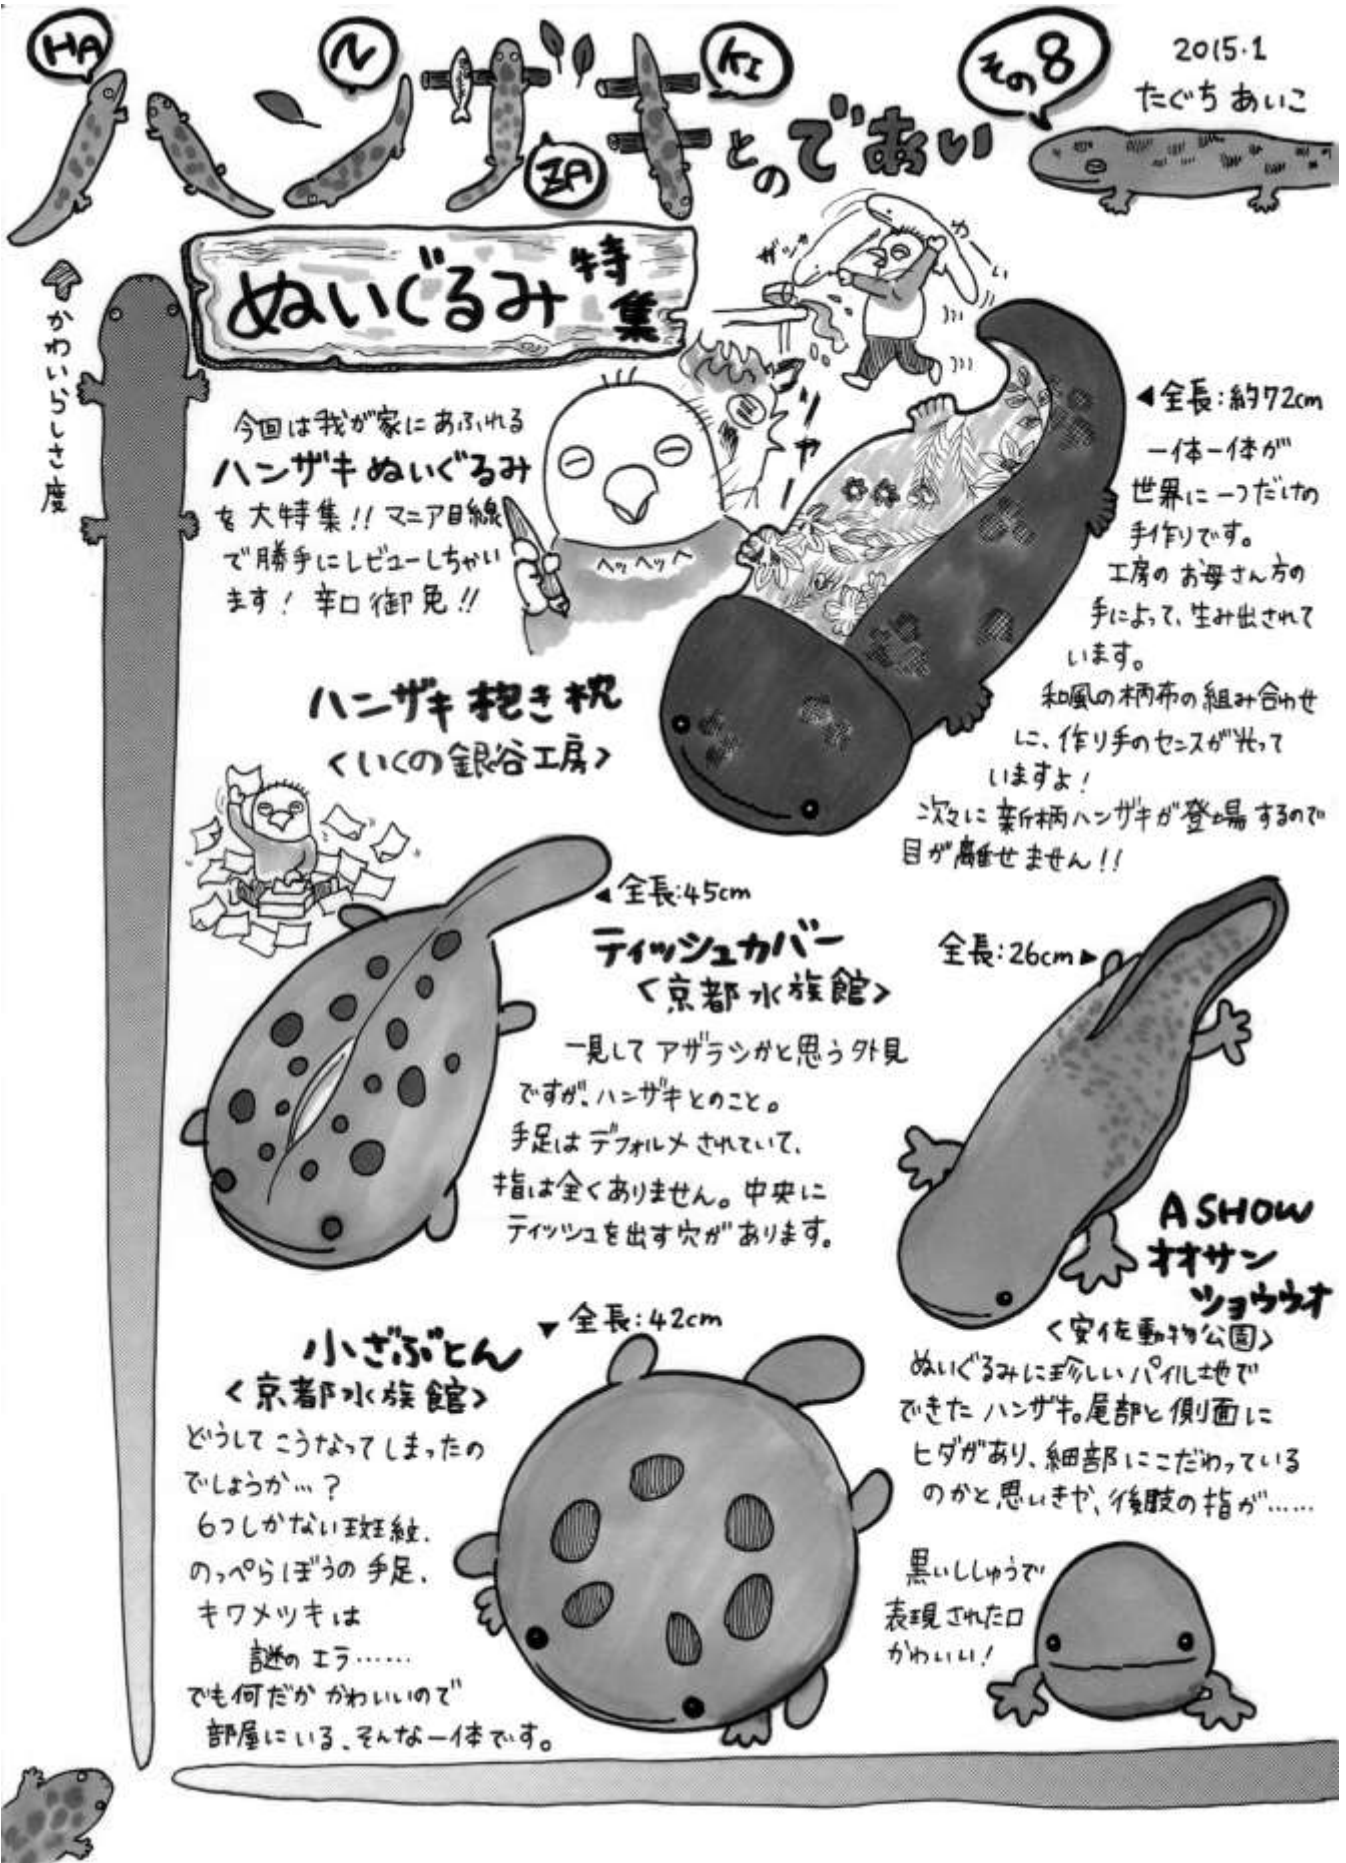 HA
N
ZA
KI
ハンザキとのであい
その8
2015.1
たぐち あいこ
ぬいぐるみ特集
かわいらしさ度
今回は我が家にあふれる
ハンザキぬいぐるみ
を大特集!! マニア目線
で勝手にレビューしちゃい
ます! 辛口御免!!
ヘッヘッヘ
ハンザキ抱き枕
<いくの銀谷工房>
◀全長:約72cm
一体一体が
世界に一つだけの
手作りです。
工房のお母さん方の
手によって、生み出されて
います。
和風の柄布の組み合わせ
に、作り手のセンスが光って
いますよ!
次々に新柄ハンザキが登場するので
目が離せません!!
◀全長:45cm
ティッシュカバー
<京都水族館>
一見してアザラシかと思う外見
ですが、ハンザキとのこと。
手足はデフォルメされていて、
指は全くありません。中央に
ティッシュを出す穴があります。
全長:26cm▶
A SHOW
オオサン
ショウウオ
<安佐動物公園>
ぬいぐるみに珍しいパイル地で
できたハンザキ。尾部と側面に
ヒダがあり、細部にこだわっている
のかと思いきや、後肢の指が……
黒いししゅうで
表現された口
かわいい!
▼全長:42cm
小ざぶとん
<京都水族館>
どうしてこうなってしまったの
でしょうか…?
6つしかない斑紋、
のっぺらぼうの手足、
キワメツキは
謎のエラ……
でも何だかかわいいので
部屋にいる、そんな一体です。